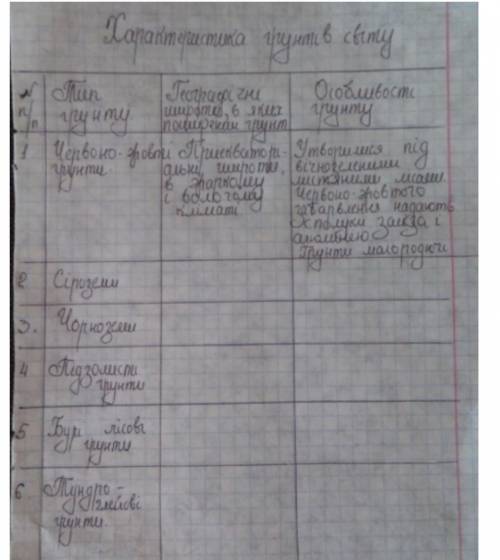 Характеристика ґрунтів світу
N п/п
Тип ґрунту
Географічні широти, в яких поширений ґрунт
Особливості ґрунту
1
Червоно-жовті ґрунти.
Приекваторіальні широти, в жаркому і вологому кліматі
Утворилися під вічнозеленими листяними лісами. Червоно-жовтого забарвлення надають сполуки заліза і алюмінію
Ґрунти малородючі
2
Сіроземи
3.
Чорноземи
4
Підзолисті ґрунти
5
Бурі лісові ґрунти
6
Тундро-глейові ґрунти.